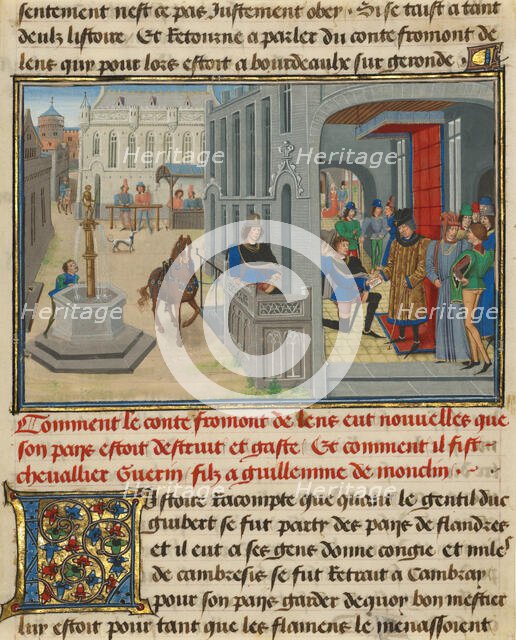 sentement nest ce pas Justement obey. Si se taist a tant
deulz listoire Et Retourne a parler du conte fromont de
lens quy pour lors estoit a bourdeaulx sur geronde
Heritage Heritage
Heritage Heritage
Heritage Heritage
Images Images
Comment le conte fromont de lens eut nouvelles que
son pays estoit destruit et gaste Et comment il fist
chevallier Guerin filz a guillemme de monclin
Istoire Racompte que quant le gentil duc
guibert se fut party des pays de flandres
et il eut a ses gens donne congie et miles
de cambresis se fut Retrait a Cambray
pour son pays garder de quoy bon mestier
luy estoit pour tant que les flamens le menassoient